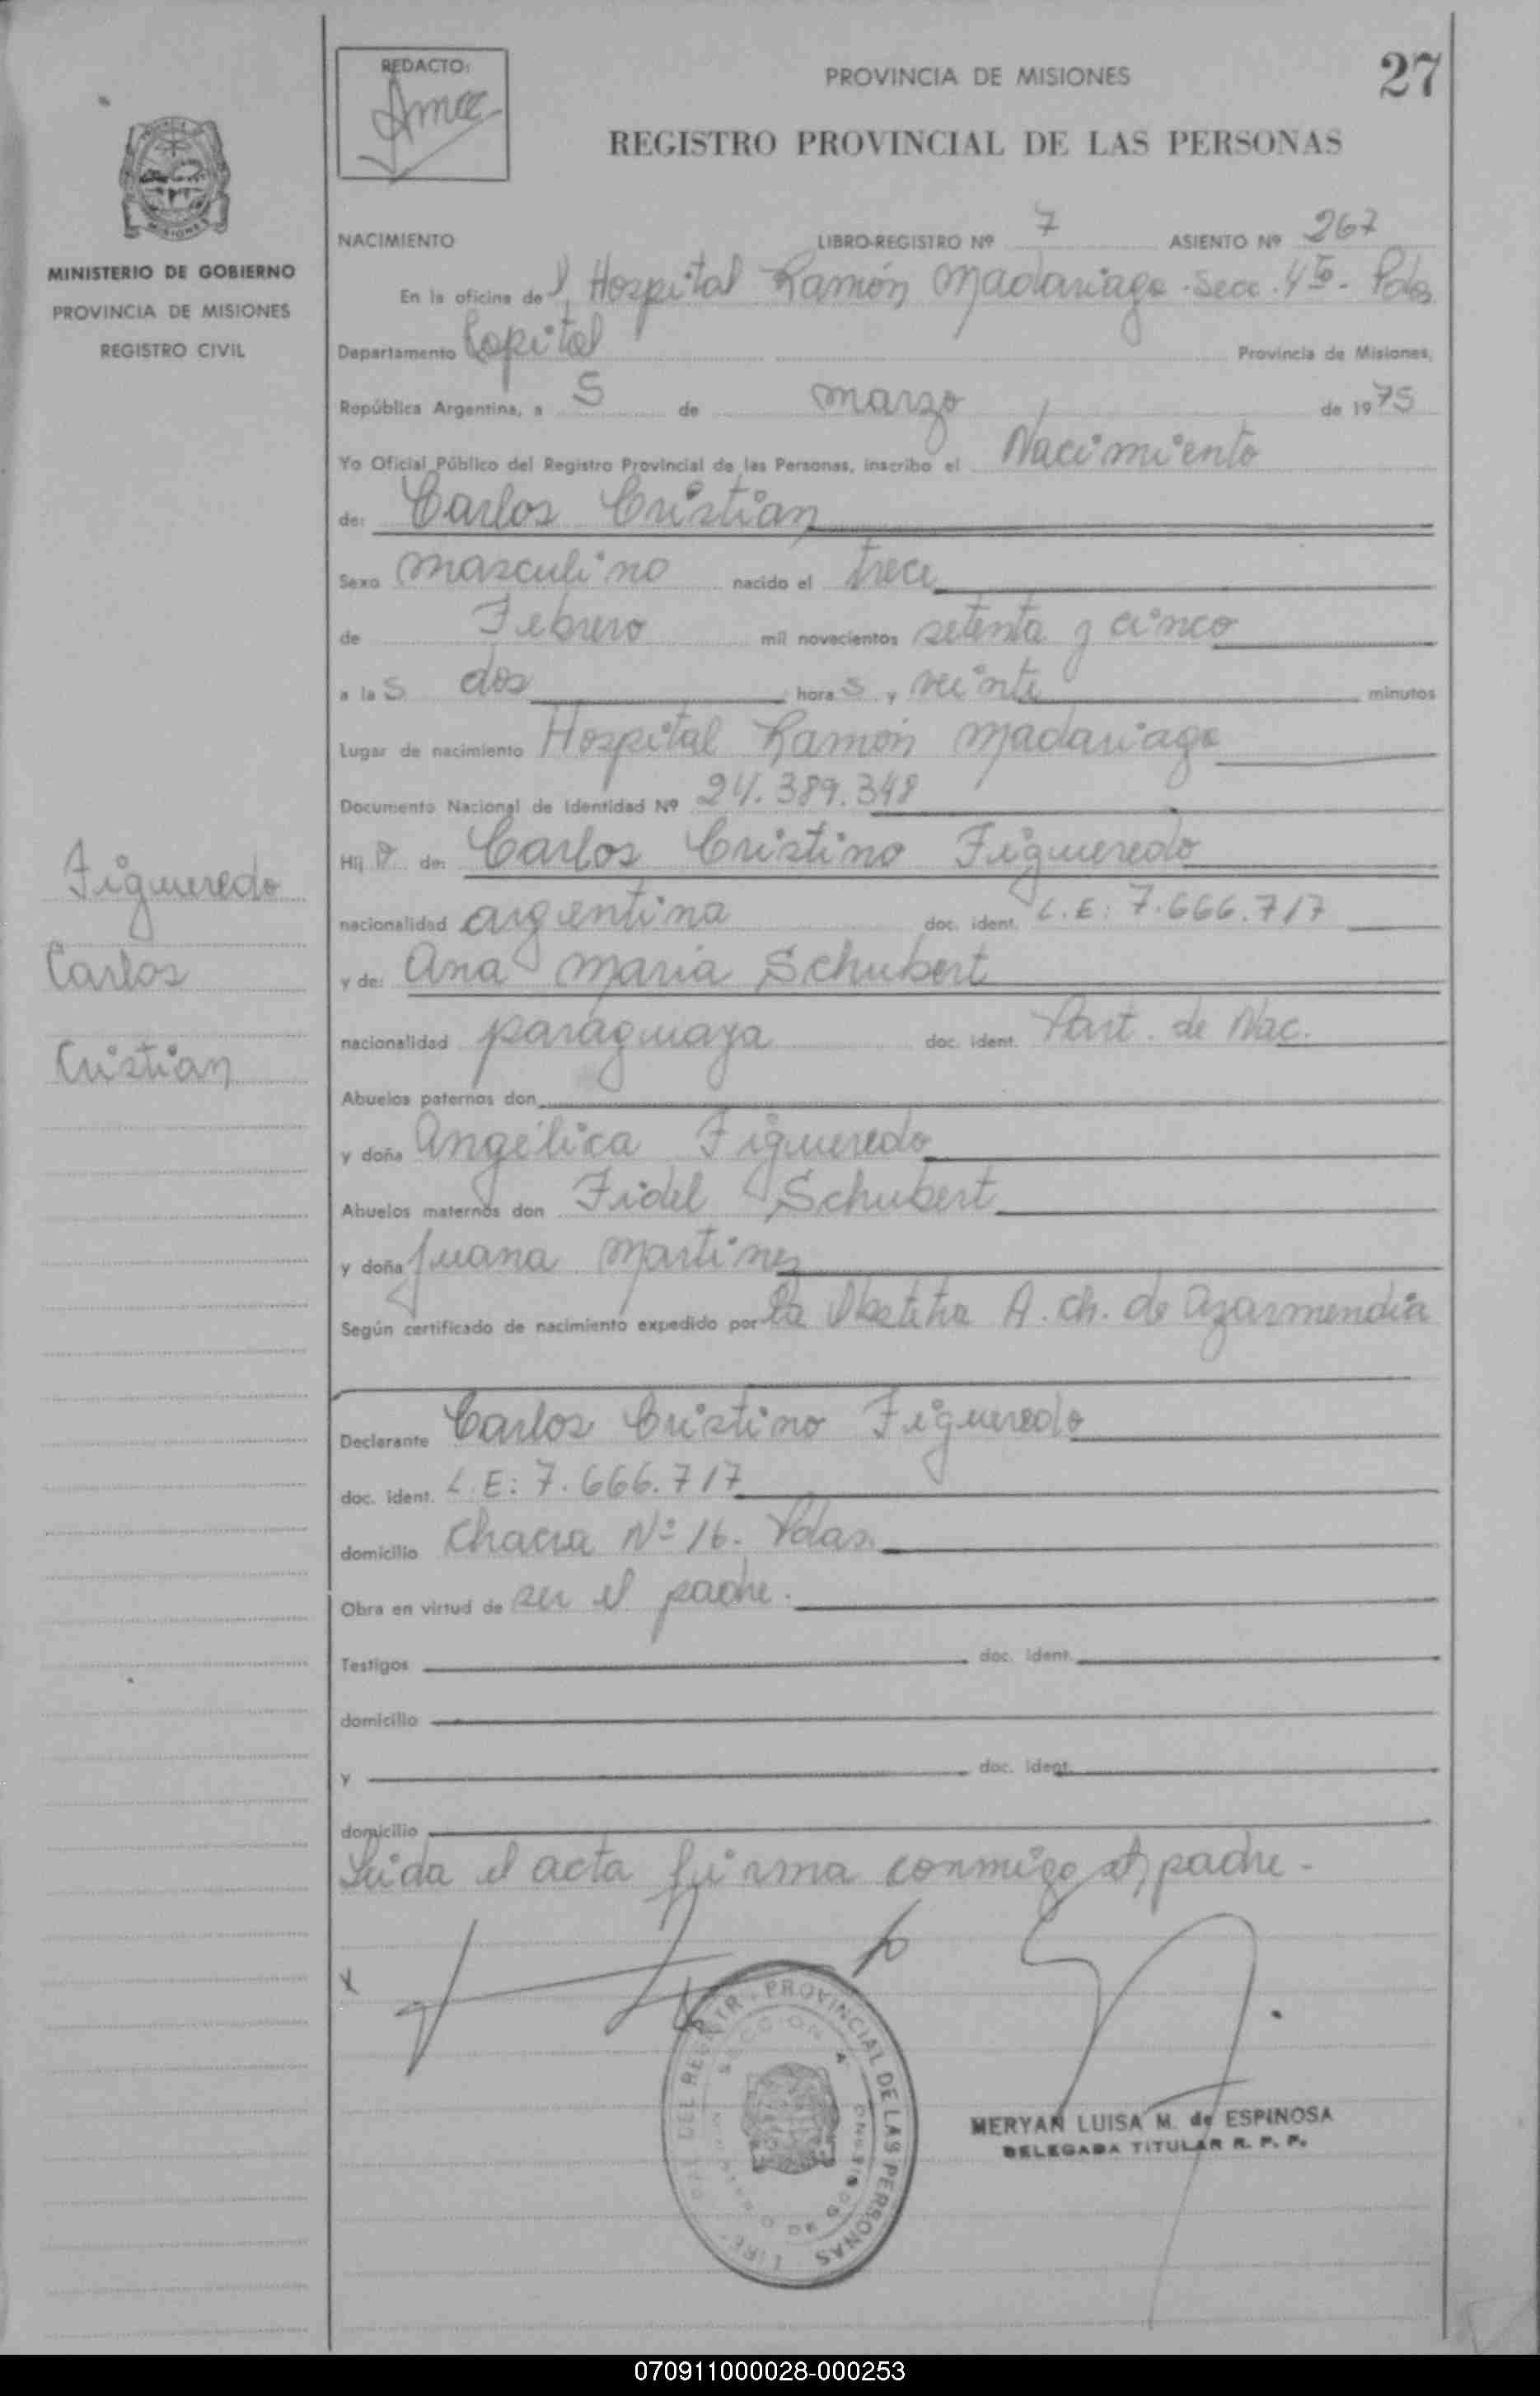 REDACTO:
PROVINCIA DE MISIONES
27
REGISTRO PROVINCIAL DE LAS PERSONAS
MISIONES
MINISTERIO DE GOBIERNO
PROVINCIA DE MISIONES
REGISTRO CIVIL
NACIMIENTO LIBRO-REGISTRO Nº 7 ASIENTO Nº 267
En la oficina del Hospital Ramón Madariaga. Secc. 4ta - Pdas
Departamento Capital Provincia de Misiones,
República Argentina, a 5 de marzo de 1975
Yo Oficial Público del Registro Provincial de las Personas, inscribo el Nacimiento
de: Carlos Cristian
Sexo masculino nacido el trece
de Febrero mil novecientos setenta y cinco
a las dos horas y veinte minutos
Lugar de nacimiento Hospital Ramón Madariaga
Documento Nacional de Identidad Nº 24.389.348
Hijo de: Carlos Cristino Figueredo
nacionalidad argentina doc. ident. L.E: 7.666.717
y de: Ana Maria Schubert
nacionalidad paraguaya doc. ident. Part. de Nac.
Abuelos paternos don
y doña Angélica Figueredo
Abuelos maternos don Fidel Schubert
y doña Juana Martinez
Según certificado de nacimiento expedido por la A. Ch. de Azarmendia
Declarante Carlos Cristino Figueredo
doc. ident. L.E: 7.666.717
domicilio Chacra Nº 16. Pdas.
Obra en virtud de ser el padre.
Testigos doc. ident.
domicilio
y doc. ident.
domicilio
Leida el acta firma conmigo el padre -
Figueredo
Carlos
Cristian
X
PROVINCIAL DE LAS PERSONAS
MERYAN LUISA M. de ESPINOSA
DELEGADA TITULAR R. P. P.
070911000028-000253